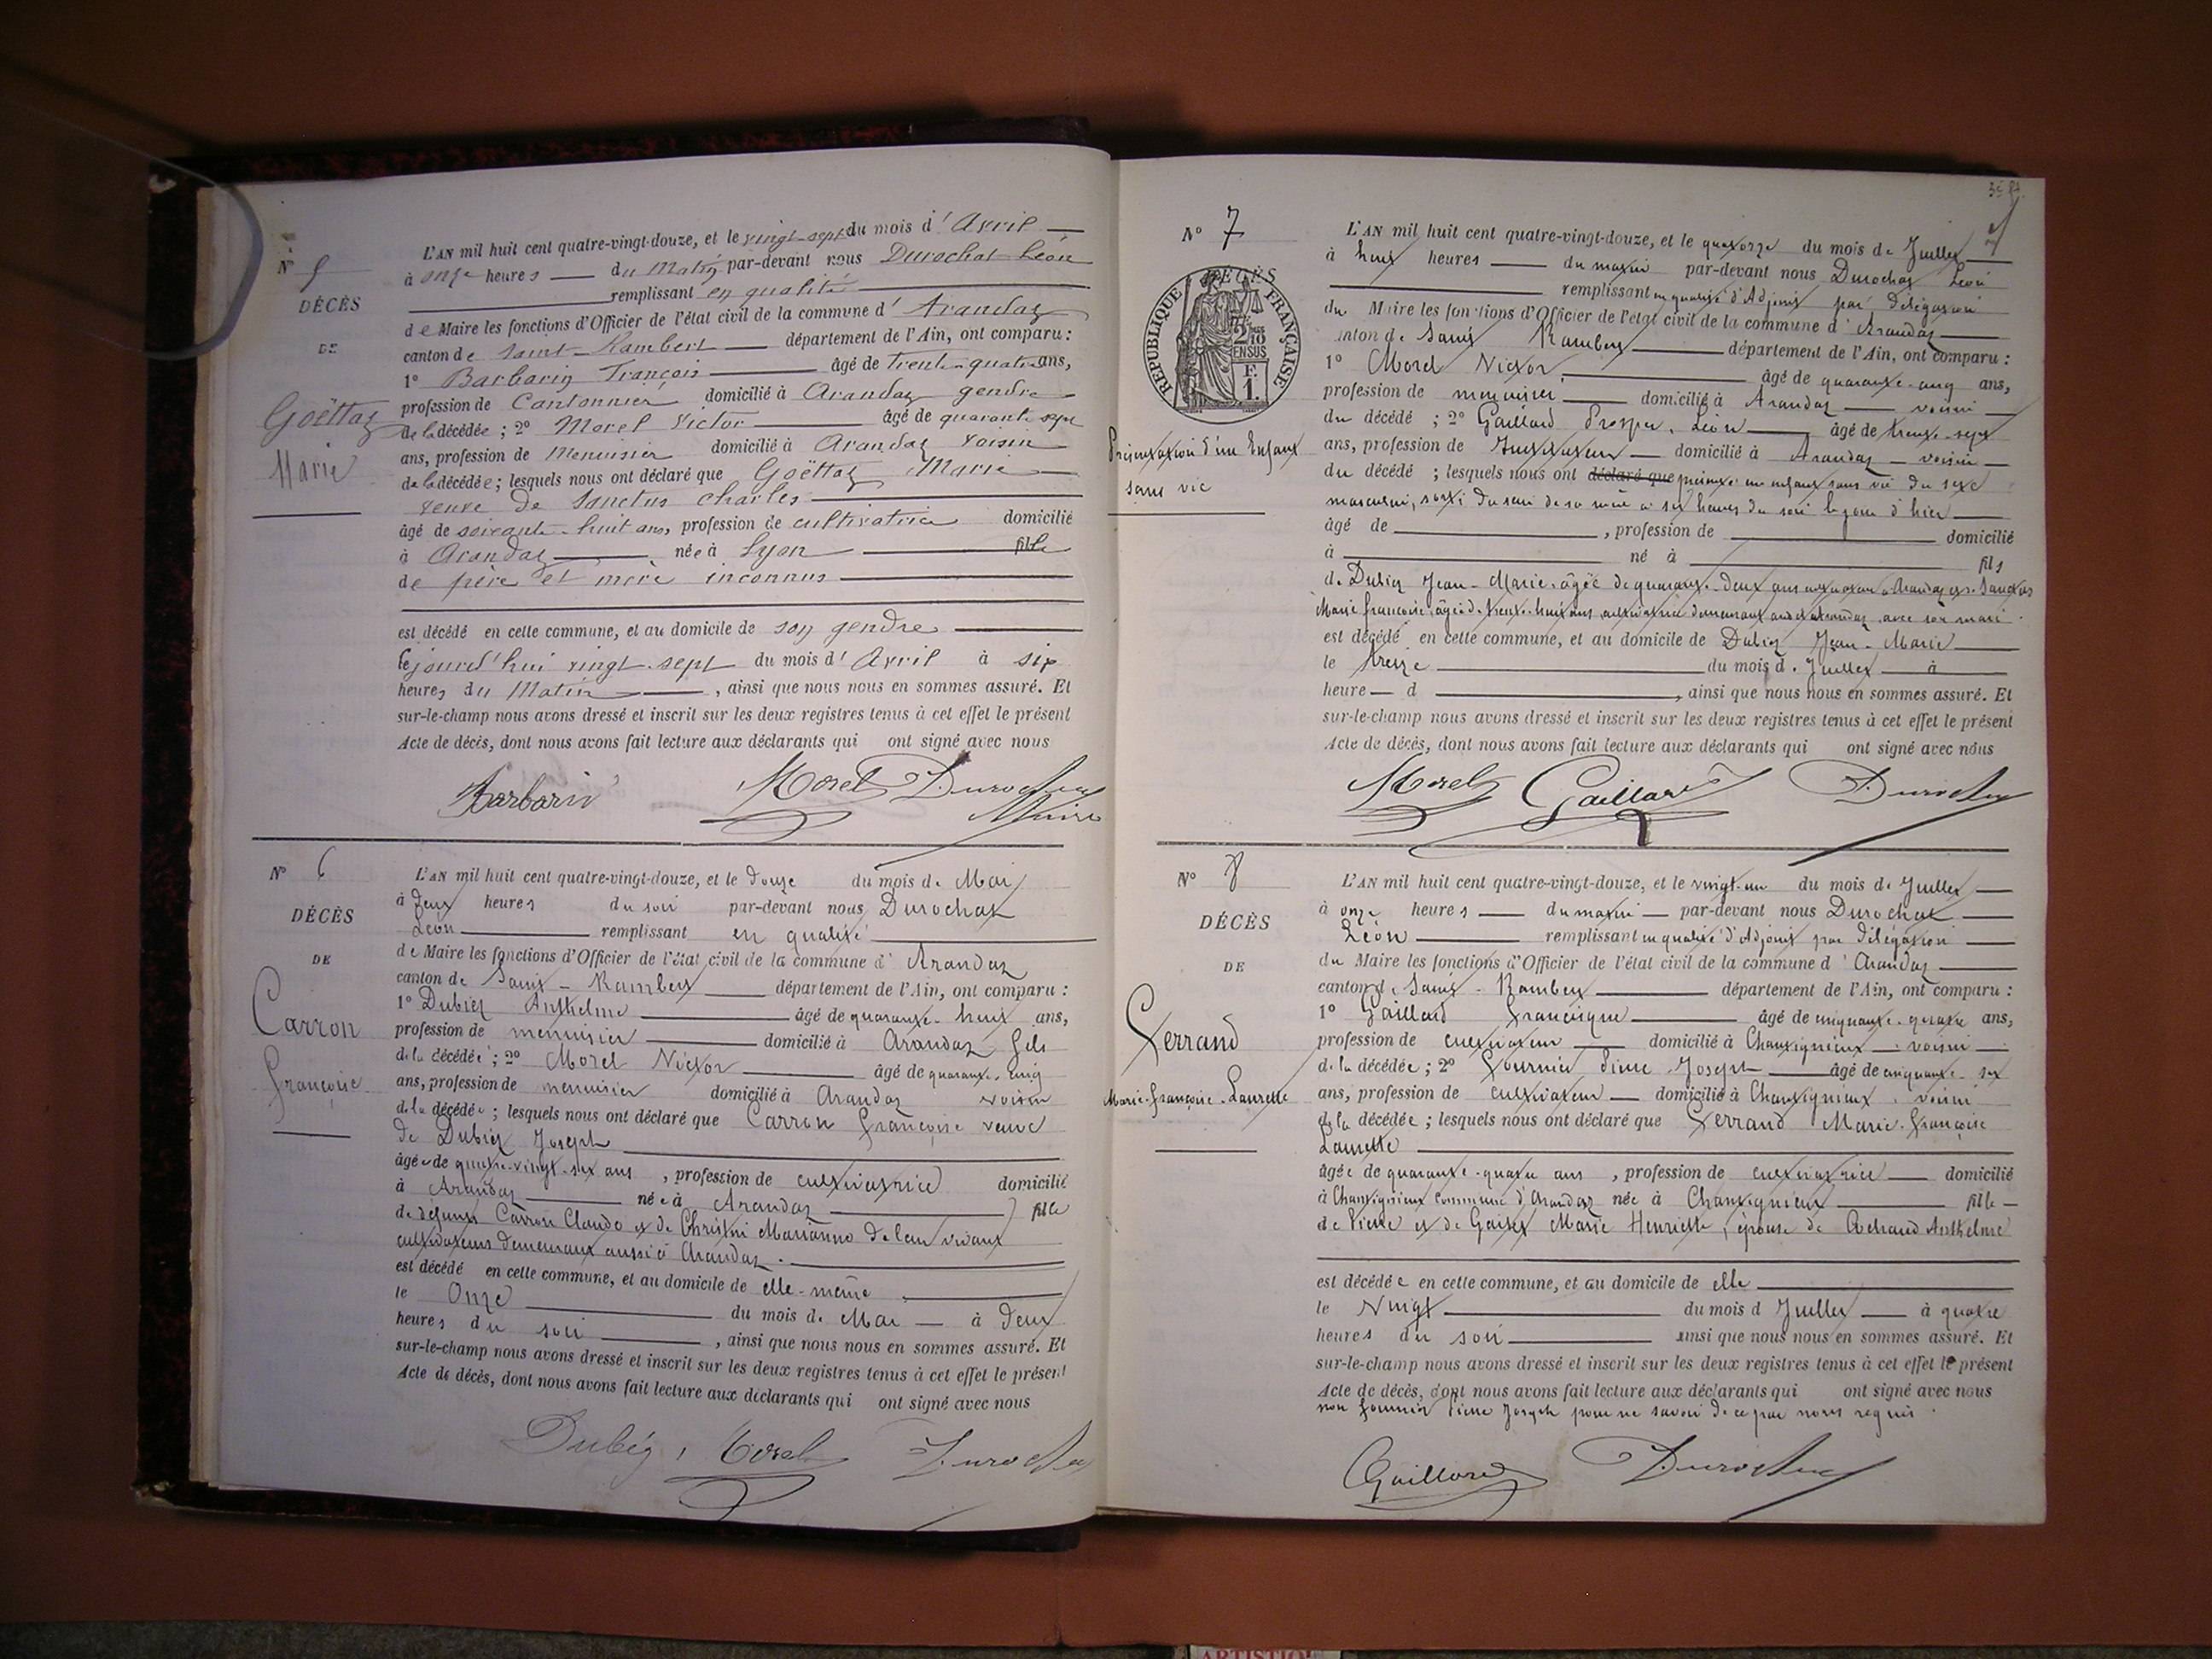 N° 5
DÉCÈS
DE
Goëttaz
Marie
L'AN mil huit cent quatre-vingt-douze, et le vingt-sept du mois d'Avril
à onze heures du Matin par-devant nous Durochat Léon
remplissant en qualité
de Maire les fonctions d'Officier de l'état civil de la commune d'Arandaz
canton de Saint-Rambert département de l'Ain, ont comparu :
1° Barbarin François âgé de trente-quatre ans,
profession de Cantonnier domicilié à Arandaz gendre
de la décédée ; 2° Morel Victor âgé de quarante sept
ans, profession de Menuisier domicilié à Arandaz voisin
de la décédée ; lesquels nous ont déclaré que Goëttaz Marie
veuve de Sanctus Charles
âgé de soixante-huit ans, profession de cultivatrice domicilié
à Arandaz née à Lyon fille
de père et mère inconnus
est décédé en cette commune, et au domicile de son gendre
le jourd'hui vingt-sept du mois d'Avril à six
heures du Matin, ainsi que nous nous en sommes assuré. Et
sur-le-champ nous avons dressé et inscrit sur les deux registres tenus à cet effet le présent
Acte de décès, dont nous avons fait lecture aux déclarants qui ont signé avec nous
Barbarin Morel Durochat
Maire
N° 6
DÉCÈS
DE
Carron
Françoise
L'AN mil huit cent quatre-vingt-douze, et le douze du mois de Mai
à deux heures du soir par-devant nous Durochat
Léon remplissant en qualité
de Maire les fonctions d'Officier de l'état civil de la commune d'Arandaz
canton de Saint-Rambert département de l'Ain, ont comparu :
1° Dubiez Anthelme âgé de quarante-huit ans,
profession de menuisier domicilié à Arandaz fils
de la décédée ; 2° Morel Victor âgé de quarante-cinq
ans, profession de menuisier domicilié à Arandaz voisin
de la décédée ; lesquels nous ont déclaré que Carron Françoise veuve
de Dubiez Joseph
âgée de quatre-vingt-six ans, profession de cultivatrice domicilié
à Arandaz née à Arandaz fille
de défunts Carron Claude et de Christin Marianne de leur vivant
cultivateurs demeurant aussi à Arandaz.
est décédé en cette commune, et au domicile de elle-même
le Onze du mois de Mai à deux
heures du soir, ainsi que nous nous en sommes assuré. Et
sur-le-champ nous avons dressé et inscrit sur les deux registres tenus à cet effet le présent
Acte de décès, dont nous avons fait lecture aux déclarants qui ont signé avec nous
Dubiéz, Morel Durochat
N° 7
RÉPUBLIQUE FRANÇAISE
2/10 EN SUS
F. 1.
Présentation d'un Enfant
sans vie
L'AN mil huit cent quatre-vingt-douze, et le quatorze du mois de Juillet
à huit heures du matin par-devant nous Durochat Léon
remplissant en qualité d'Adjoint par délégation
du Maire les fonctions d'Officier de l'état civil de la commune d'Arandaz
canton de Saint Rambert département de l'Ain, ont comparu :
1° Morel Victor, âgé de quarante-cinq ans,
profession de menuisier domicilié à Arandaz voisin
du décédé ; 2° Gaillard Prosper, Léon âgé de trente-sept
ans, profession de Instituteur domicilié à Arandaz voisin
du décédé ; lesquels nous ont déclaré que présenté un enfant sans vie du sexe
masculin, sorti du sein de sa mère à six heures du soir le jour d'hier
âgé de , profession de domicilié
à né à fils
de Dubiez Jean-Marie âgé de quarante-deux ans cultivateur à Arandaz et de Sanctus
Marie Françoise âgée de trente-huit ans cultivatrice demeurant aussi à Arandaz avec son mari.
est décédé en cette commune, et au domicile de Dubiez Jean-Marie
le treize du mois de Juillet à
heure d , ainsi que nous nous en sommes assuré. Et
sur-le-champ nous avons dressé et inscrit sur les deux registres tenus à cet effet le présent
Acte de décès, dont nous avons fait lecture aux déclarants qui ont signé avec nous
Morel Gaillard Durochat
N° 8
DÉCÈS
DE
Ferrand
Marie-Françoise-Laurette
L'AN mil huit cent quatre-vingt-douze, et le vingt-un du mois de Juillet
à onze heures du matin par-devant nous Durochat
Léon remplissant en qualité d'Adjoint par délégation
du Maire les fonctions d'Officier de l'état civil de la commune d'Arandaz
canton de Saint-Rambert département de l'Ain, ont comparu :
1° Gaillard Francisque âgé de cinquante-quatre ans,
profession de cultivateur domicilié à Chantignieux voisin
de la décédée ; 2° Fournier Pierre Joseph âgé de cinquante-six
ans, profession de cultivateur domicilié à Chantignieux, voisin
de la décédée ; lesquels nous ont déclaré que Ferrand Marie-Françoise
Laurette
âgée de quarante-quatre ans, profession de cultivatrice domicilié
à Chantignieux commune d'Arandaz née à Chantignieux fille
de Pierre et de Marie Henriette, épouse de Anthelme
est décédée en cette commune, et au domicile de elle
le Vingt du mois d Juillet à quatre
heures du soir ainsi que nous nous en sommes assuré. Et
sur-le-champ nous avons dressé et inscrit sur les deux registres tenus à cet effet le présent
Acte de décès, dont nous avons fait lecture aux déclarants qui ont signé avec nous
non Fournier Pierre Joseph pour ne savoir de ce par nous requis.
Gaillard Durochat